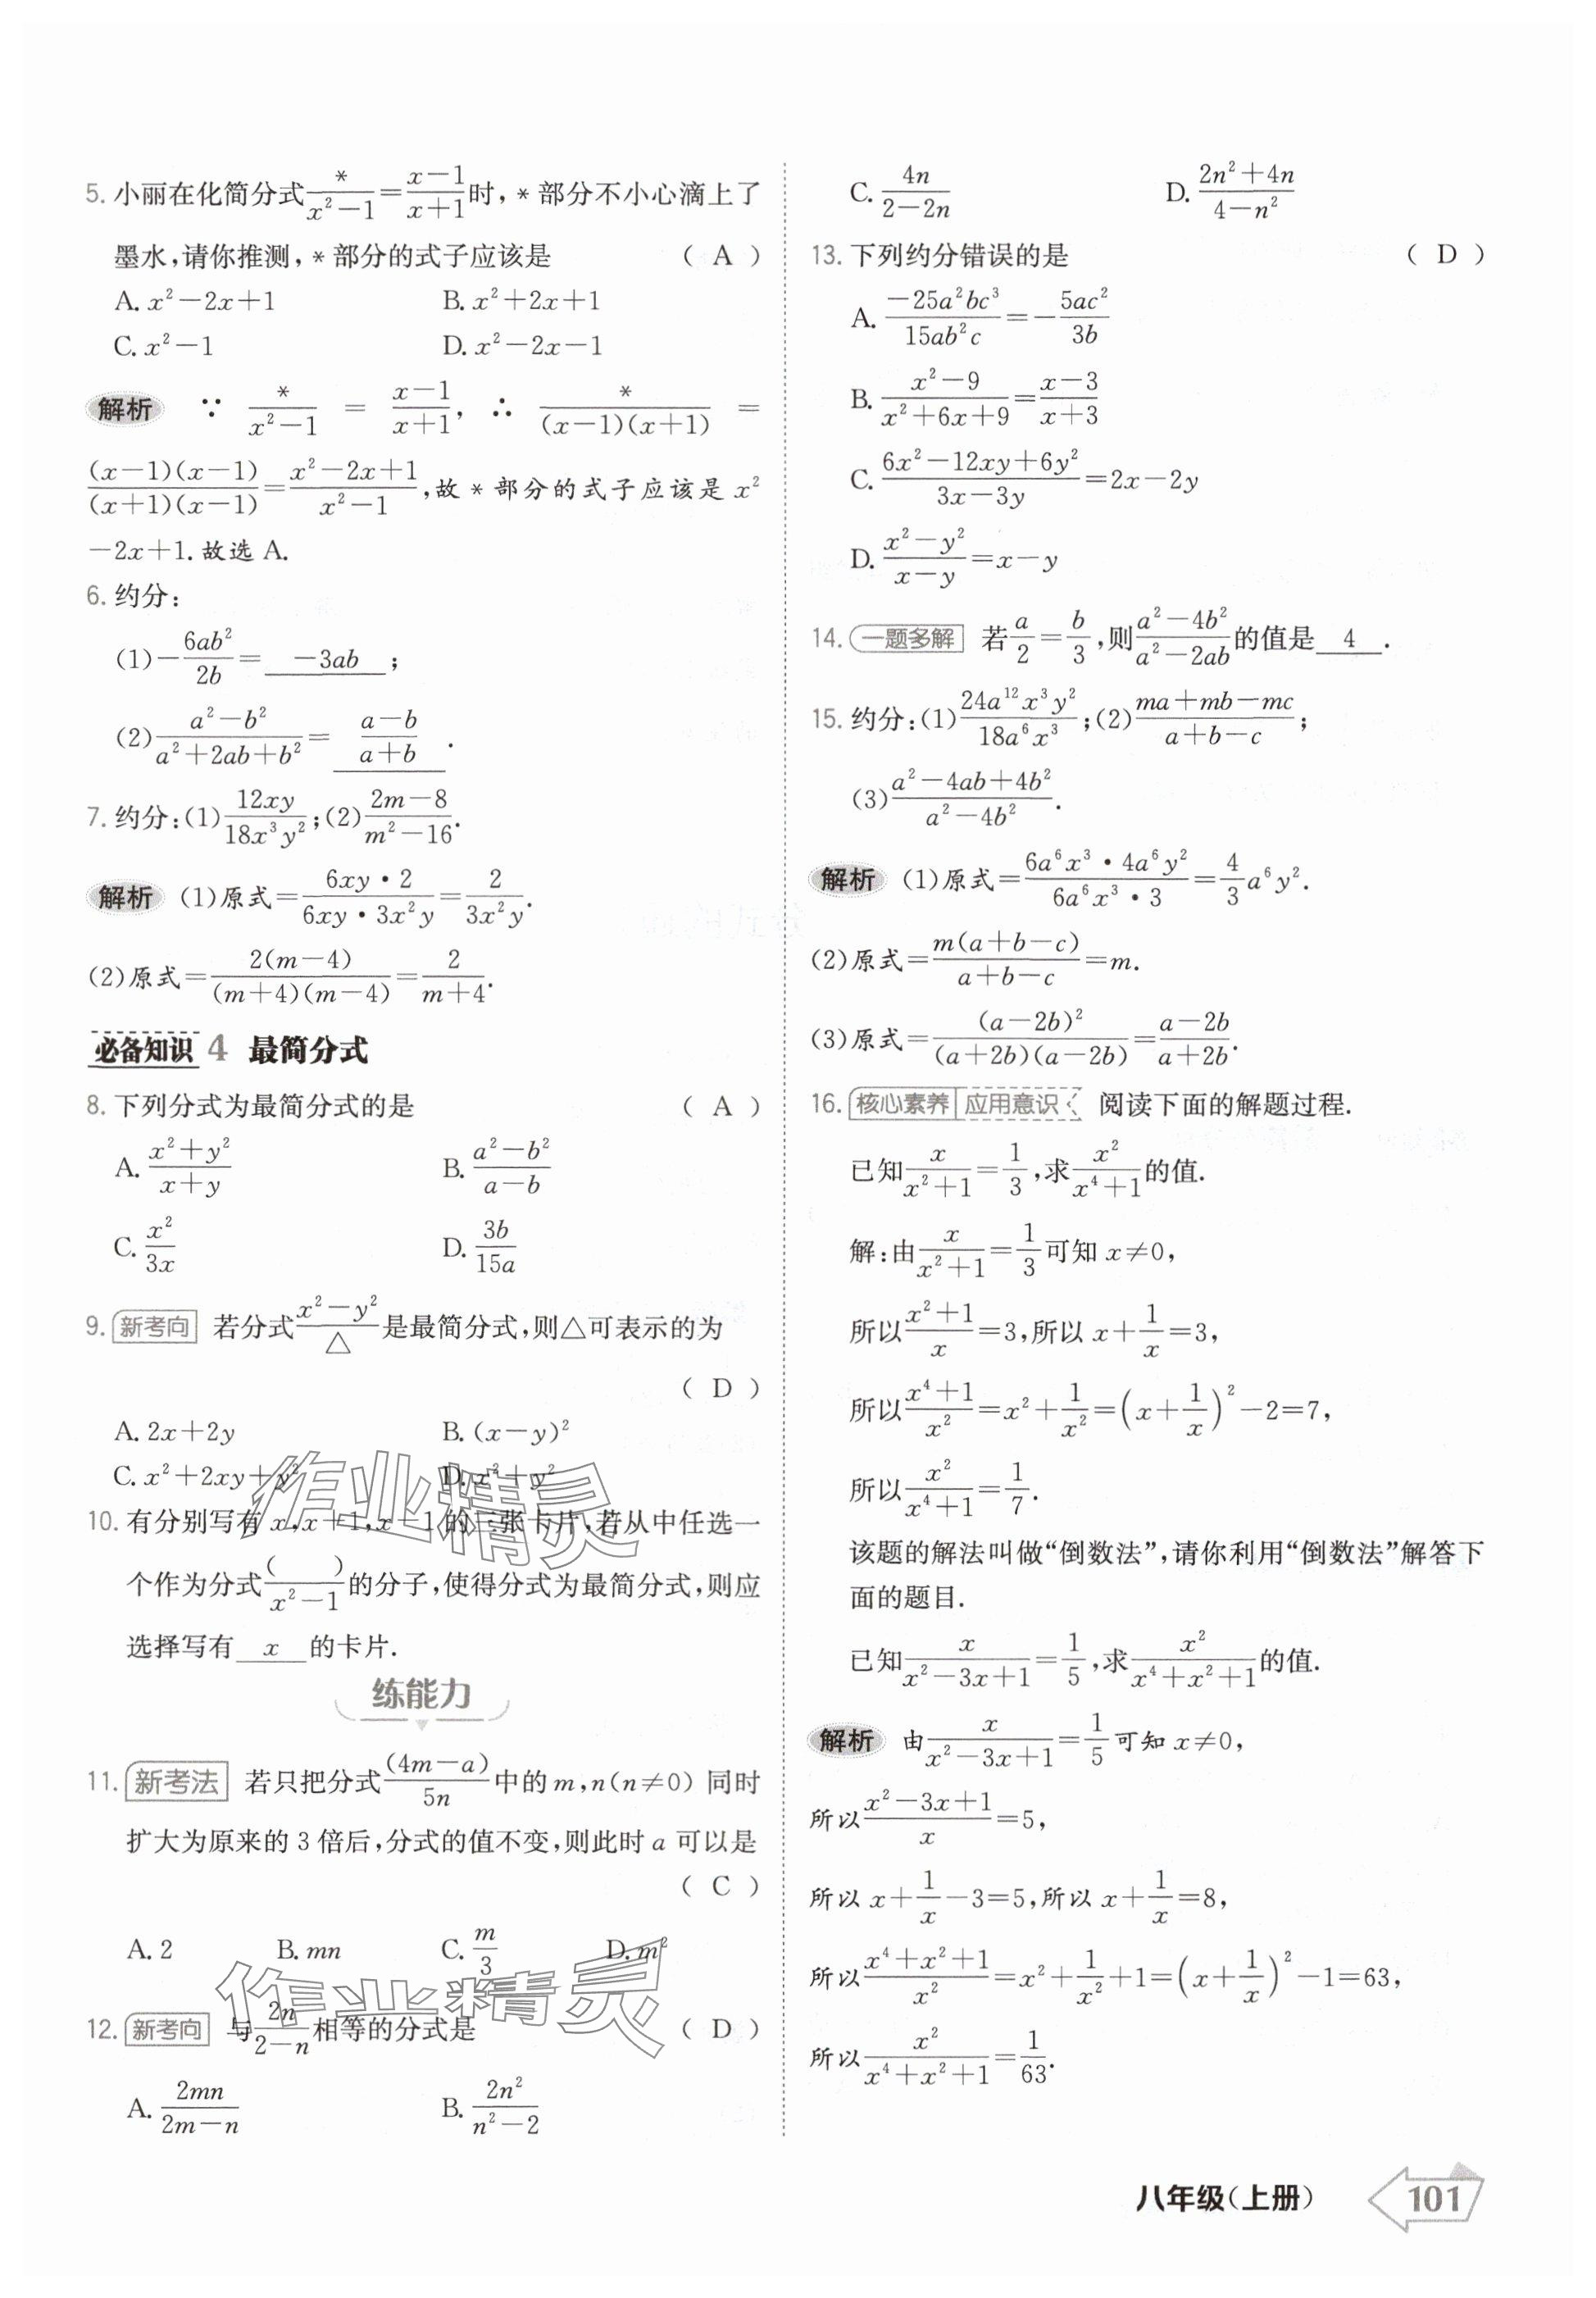 5. 小丽在化简分式 */(x²－1)＝(x－1)/(x＋1)时,＊部分不小心滴上了
墨水,请你推测,＊部分的式子应该是 ( A )
A. x²－2x＋1 B. x²＋2x＋1
C. x²－1 D. x²－2x－1
解析 ∵ */(x²－1) ＝ (x－1)/(x＋1), ∴ */((x－1)(x＋1)) ＝
((x－1)(x－1))/((x＋1)(x－1))＝(x²－2x＋1)/(x²－1),故＊部分的式子应该是 x²
－2x＋1. 故选 A.
6. 约分:
(1)－6ab²/2b＝ －3ab ;
(2)(a²－b²)/(a²＋2ab＋b²)＝ (a－b)/(a＋b) .
7. 约分:(1)12xy/18x³y²;(2)(2m－8)/(m²－16).
解析 (1)原式＝(6xy·2)/(6xy·3x²y)＝2/3x²y.
(2)原式＝2(m－4)/((m＋4)(m－4))＝2/(m＋4).
必备知识 4 最简分式
8. 下列分式为最简分式的是 ( A )
A. (x²＋y²)/(x＋y) B. (a²－b²)/(a－b)
C. x²/3x D. 3b/15a
9. 新考向 若分式(x²－y²)/△是最简分式,则△可表示的为
( D )
A. 2x＋2y B. (x－y)²
C. x²＋2xy＋y² D. x²＋y²
10. 有分别写有 x,x＋1,x－1 的三张卡片,若从中任选一
个作为分式( )/(x²－1)的分子,使得分式为最简分式,则应
选择写有 x 的卡片.
练能力
11. 新考法 若只把分式(4m－a)/5n中的 m,n(n≠0) 同时
扩大为原来的 3 倍后,分式的值不变,则此时 a 可以是
( C )
A. 2 B. mn C. m/3 D. m²
12. 新考向 与2n/(2－n)相等的分式是 ( D )
A. 2mn/(2m－n) B. 2n²/(n²－2)
C. 4n/(2－2n) D. (2n²＋4n)/(4－n²)
13. 下列约分错误的是 ( D )
A. －25a²bc³/15ab²c＝－5ac²/3b
B. (x²－9)/(x²＋6x＋9)＝(x－3)/(x＋3)
C. (6x²－12xy＋6y²)/(3x－3y)＝2x－2y
D. (x²－y²)/(x－y)＝x－y
14. 一题多解 若a/2＝b/3,则(a²－4b²)/(a²－2ab)的值是 4 .
15. 约分:(1)24a¹²x³y²/18a⁶x³;(2)(ma＋mb－mc)/(a＋b－c);
(3)(a²－4ab＋4b²)/(a²－4b²).
解析 (1)原式＝(6a⁶x³·4a⁶y²)/(6a⁶x³·3)＝4/3 a⁶y².
(2)原式＝m(a＋b－c)/(a＋b－c)＝m.
(3)原式＝(a－2b)²/((a＋2b)(a－2b))＝(a－2b)/(a＋2b).
16. 核心素养 应用意识 阅读下面的解题过程.
已知x/(x²＋1)＝1/3,求x²/(x⁴＋1)的值.
解:由x/(x²＋1)＝1/3可知 x≠0,
所以(x²＋1)/x＝3,所以 x＋1/x＝3,
所以(x⁴＋1)/x²＝x²＋1/x²＝(x＋1/x)²－2＝7,
所以x²/(x⁴＋1)＝1/7.
该题的解法叫做“倒数法”,请你利用“倒数法”解答下
面的题目.
已知x/(x²－3x＋1)＝1/5,求x²/(x⁴＋x²＋1)的值.
解析 由x/(x²－3x＋1)＝1/5可知 x≠0,
所以(x²－3x＋1)/x＝5,
所以 x＋1/x－3＝5,所以 x＋1/x＝8,
所以(x⁴＋x²＋1)/x²＝x²＋1/x²＋1＝(x＋1/x)²－1＝63,
所以x²/(x⁴＋x²＋1)＝1/63.
八年级(上册) 101
作业精灵
作业精灵